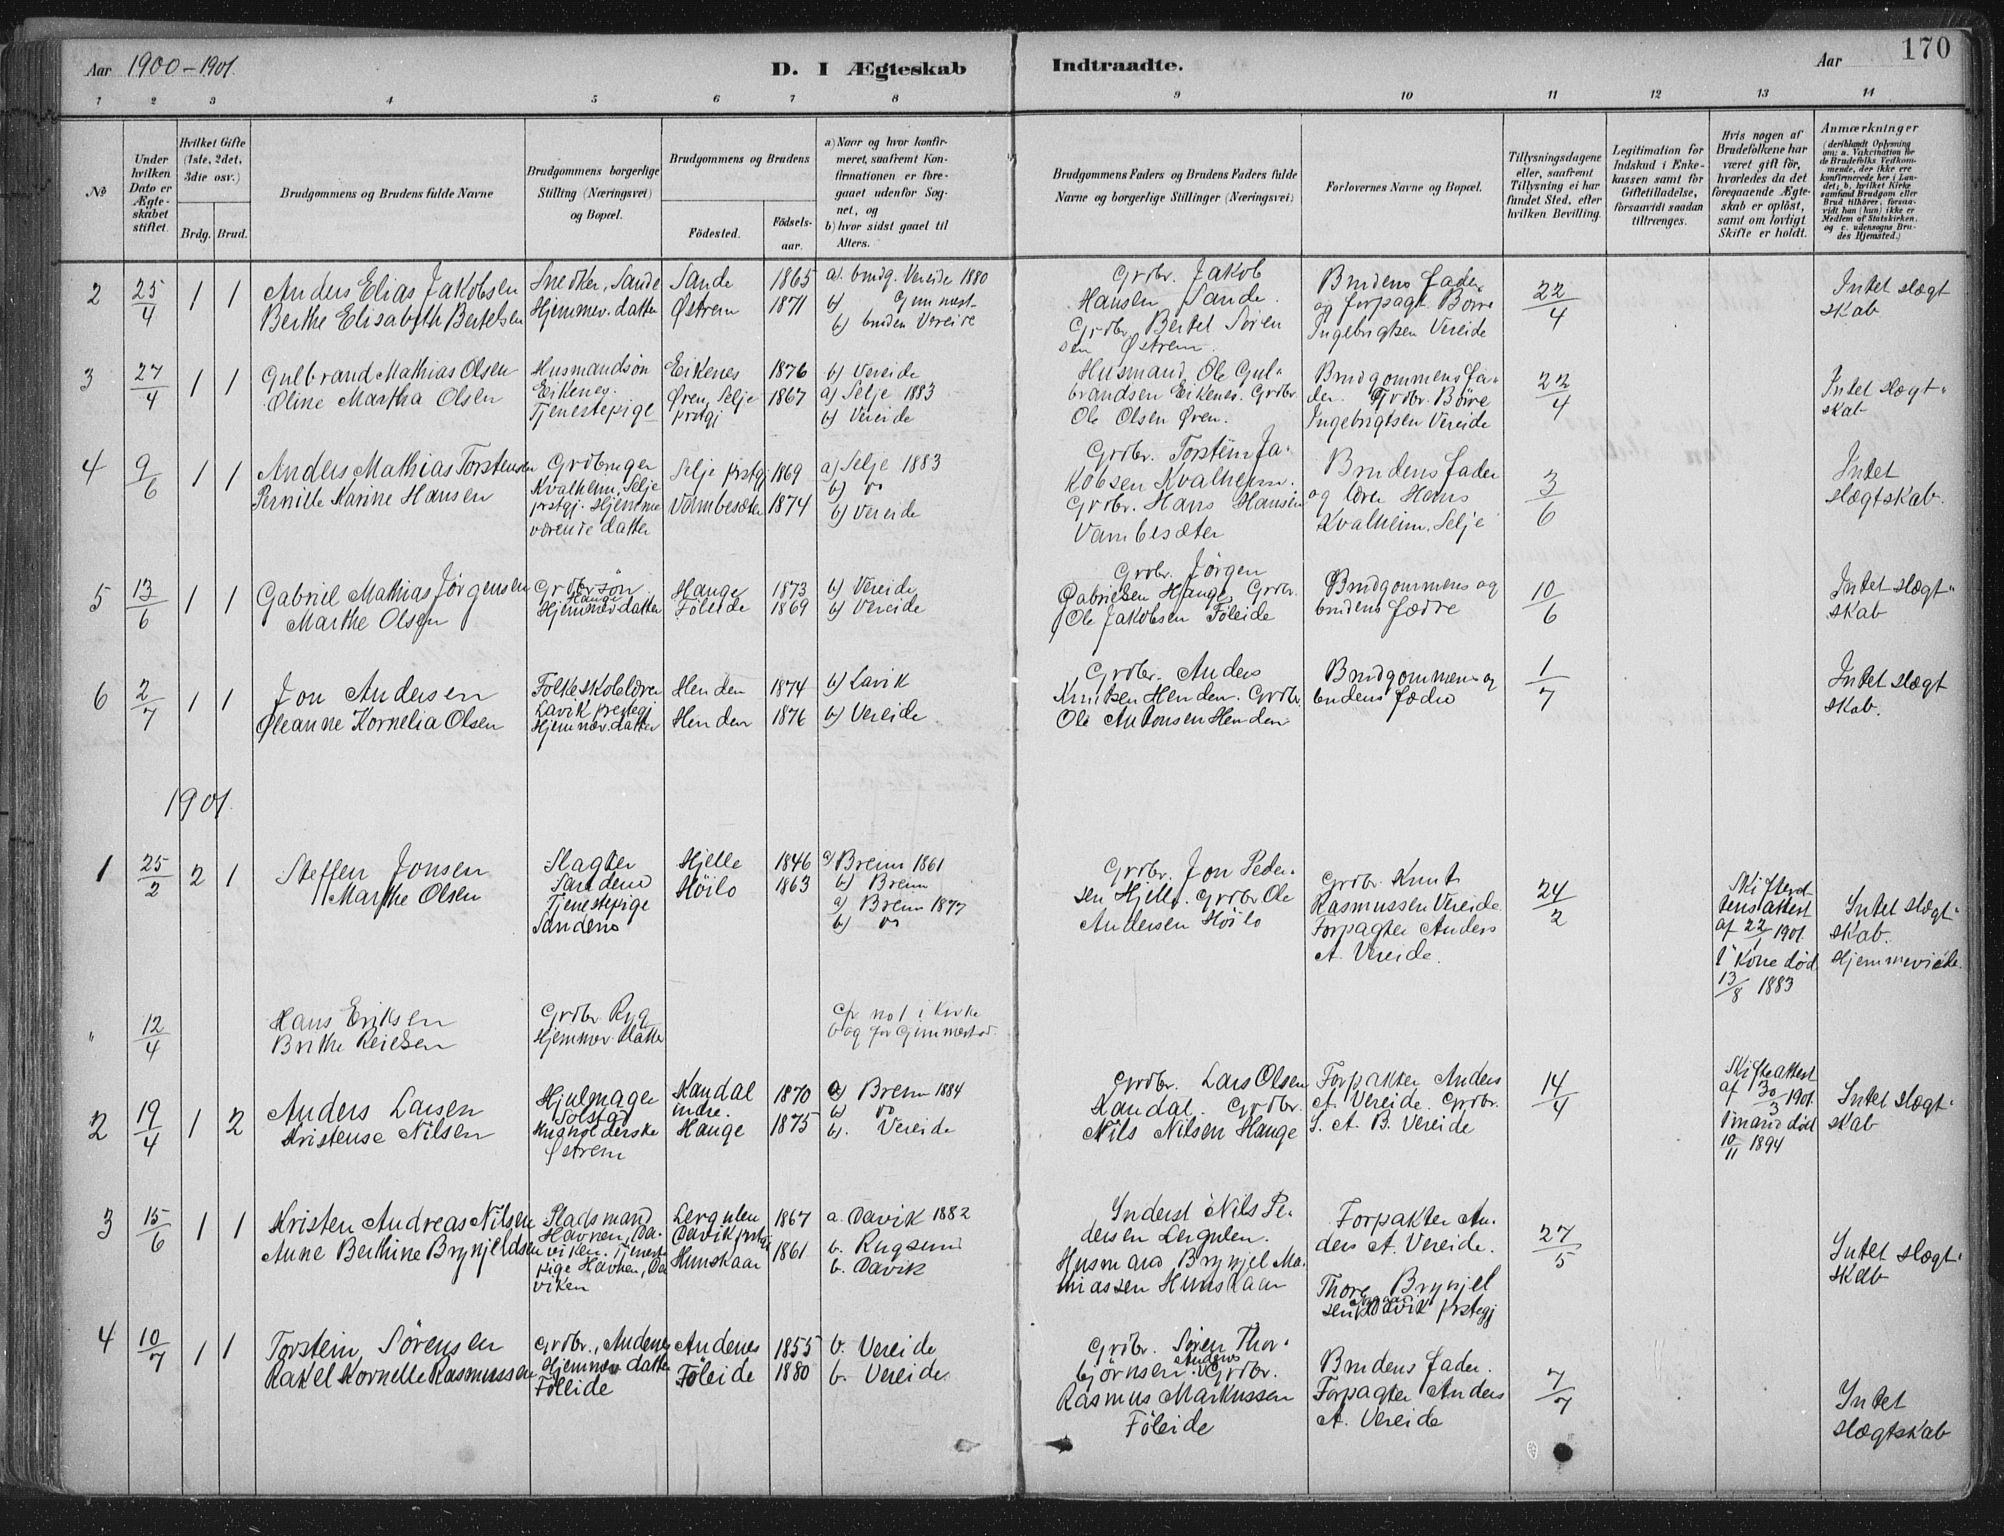 Aar 1900-1901. D. I Ægteskab Indtraadte. Aar 170
1 2 3 4 5 6 7 8 9 10 11 12 13 14
No
Under hvilken Dato er Ægteskabet stiftet.
Hvilket Gifte (1ste, 2det, 3die osv.)
Brdg. Brud.
Brudgommens og Brudens fulde Navne
Brudgommens borgerlige Stilling (Næringsvei) og Bopæl.
Brudgommens og Brudens
Fødested. Fødselsaar.
a) Naar og hvor konfirmeret, saafremt Konfirmationen er foregaaet udenfor Sognet, og
b) hvor sidst gaaet til Alters.
Brudgommens Faders og Brudens Faders fulde Navne og borgerlige Stillinger (Næringsvei)
Forlovernes Navne og Bopæl.
Tillysningsdagene eller, saafremt Tillysning ei har fundet Sted, efter hvilken Bevilling.
Legitimation for Indskud i Enkekassen samt for Giftetilladelse, forsaavidt saadan tiltrænges.
Hvis nogen af Brudefolkene har været gift før, hvorledes da det foregaaende Ægteskab er opløst, samt om lovligt Skifte er holdt.
Anmærkninger (deriblandt Oplysning om: a. Vakcination for de Brudefolks Vedkommende, der ikke ere konfirmerede her i Landet; b. hvilket Kirkesamfund Brudgom eller Brud tilhører, forsaavidt han (hun) ikke er Medlem af Statskirken, og c. udensogns Brudes Hjemsted.)
2 25/4 1 1
Anders Elias Jakobsen
Berthe Elisabeth Bertelsen
Snedker, Sande
Hjemmev. datter
Sande 1865
Østrem 1871
a. brudg. Vereide 1880
b) Gimmest.
b) bruden Vereide
Grdbr. Jakob
Hansen Sande.
Grdbr. Bertel Søren
sen Østrem.
Brudens fader
og forpagt. Børre
Ingebrigtsen Vereide
22/4
Intet slægt
skab
3 27/4 1 1
Gulbrand Mathias Olsen
Oline Martha Olsen
Husmandsøn
Eikenes.
Tjenestepige
Eikenes 1876
Øren, Selje 1867
prstgj
b) Vereide
a) Selje 1883
b) Vereide
Husmand Ole Gul-
brandsen Eikenes. Grdbr.
Ole Olsen Øren.
Brudgommens fa-
der. Grdbr. Børre
Ingebrigtsen Vereide
22/4
Intet slægt-
skab
4 9/6 1 1
Anders Mathias Torstensen
Pernille Karine Hansen
Grdbruger
Kvalheim, Selje
prstgj. Hjemme
værende datter
Selje prstgj 1869
Vambesæter 1874
a) Selje 1883
b) do
b) Vereide
Grdbr. Torstein Ja-
kobsen Kvalheim.
Grdbr. Hans Hansen
Vambesæter
Brudens fader
og lærer Hans
Kvalheim, Selje
3/6
Intet
slægtskab.
5 13/6 1 1
Gabriel Mathias Jørgensen
Marthe Olsen
Grdbr søn
Hauge
Hjemmev. datter
Hauge 1873
Føleide 1869
b) Vereide
b) Vereide
Grdbr. Jørgen
Gabrielsen Hauge. Grdbr.
Ole Jakobsen Føleide
Brudgommens og
brudens fædre
10/6
Intet slægt-
skab
6 2/7 1 1
Jon Andersen
Oleanne Kornelia Olsen
Folkeskolelærer
Lavik prestegj
Hjemmev. datter
Henden 1874
Henden 1876
b) Lavik
b) Vereide
Grdbr. Anders
Knutsen Henden. Grdbr.
Ole Antonsen Henden
Brudgommens og
brudens fædre
1/7
Intet slægt
skab.
1901.
1 25/2 2 1
Steffen Jonsen
Marthe Olsen
Slagter
Sandene
Tjenestepige
Sandene
Hjelle 1846
Høilo 1863
a) Breim 1861
b) Breim
a) Breim 1877
b) do
Grdbr. Jon Peder-
sen Hjelle. Grdbr Ole
Andersen Høilo
Grdbr. Knut
Rasmussen Vereide.
Forpagter Anders
A. Vereide.
24/2
Skifteret-
tens attest
af 22/1 1901.
1' Kone død
13/8 1883
Intet slægt-
skab.
Hjemmeviede.
" 12/4
Hans Eriksen
Brithe Reiesen
Grdbr Ryg
Hjemmev. datter
cfr no 1 i kirke
bog for Gjemmestad.
2 19/4 1 2
Anders Larsen
Kristense Nilsen
Hjulmager
Solstad
Husholderske
Østrem
Kandal 1870
indre.
Hauge 1875
a) Breim 1884
b) do
b. Vereide
Grdbr. Lars Olsen
Kandal. Grdbr.
Nils Nilsen Hauge
Forpakter Anders
A. Vereide. Grdbr.
S. A. B. Vereide
14/4
Skifteattest
af 30/3 1901.
1' mand død
10/11 1894
Intet slægt-
skab
3 15/6 1 1
Kristen Andreas Nilsen
Anne Berthine Brynjeldsen
Pladsmand
Havnen, Da-
viken. Tjeneste
pige Havnen, Da
viken
Lergulen 1867
Davik prstgj
Hunskaar 1861
a. Davik 1882
b. Rugsund
b. Davik
Inderst Nils Pe-
dersen Lergulen.
Husmand Brynjel Ma-
thiassen Hunskaar
Forpakter An-
ders A. Vereide.
Thore Brynjel
sen Davik prstegj
27/5
Intet slægt-
skab
4 10/7 1 1
Torstein Sørensen
Rakel Kornelie Rasmussen
Grdbr., Andenes
Hjemmev datter
Føleide
Andenes 1855
Føleide 1880
b. Vereide
b. Vereide.
Grdbr. Søren Thor-
bjørnsen Andenes. Grdbr.
Rasmus Markussen
Føleide
Brudens fader.
Forpagter Anders
A. Vereide
7/7
Intet
slægtskab